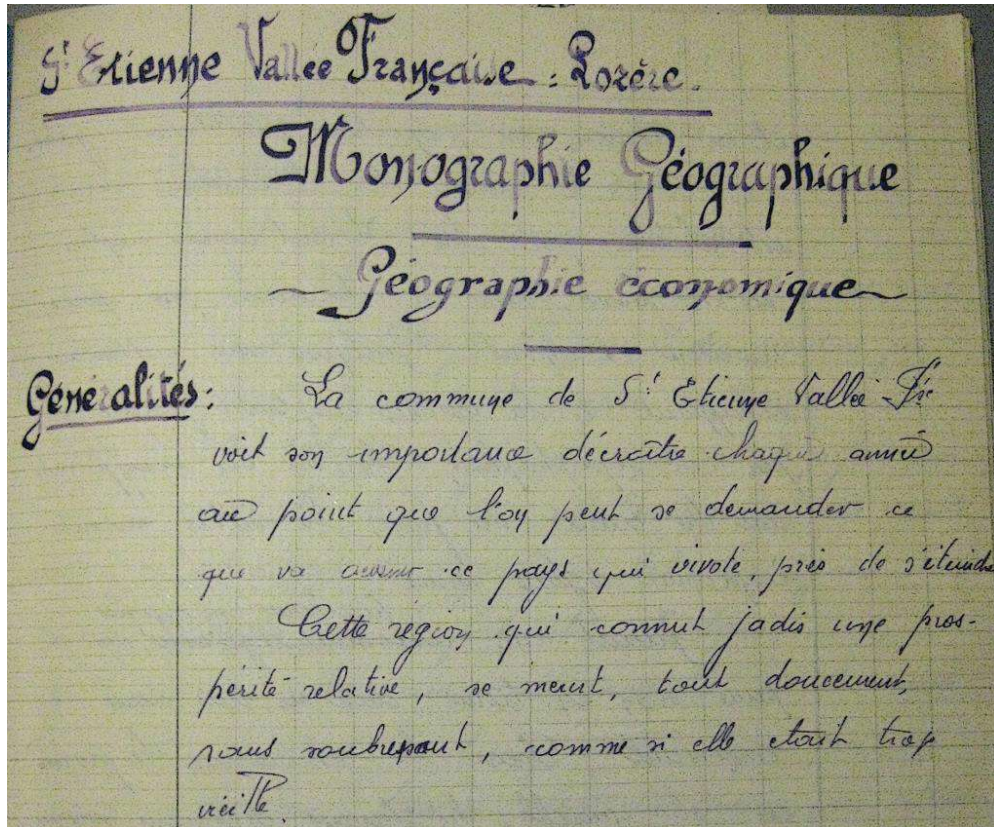 St Etienne Vallée Française : Lozère.
Monographie Géographique
Géographie économique
Généralités : La commune de St Etienne Vallée Fse
voit son importance décroître chaque année
au point que l'on peut se demander ce
que va devenir ce pays qui vivote, près de s'éteindre
Cette région qui connut jadis une pros-
périté relative, se meurt, tout doucement,
sans soubresaut, comme si elle était trop
vieille.